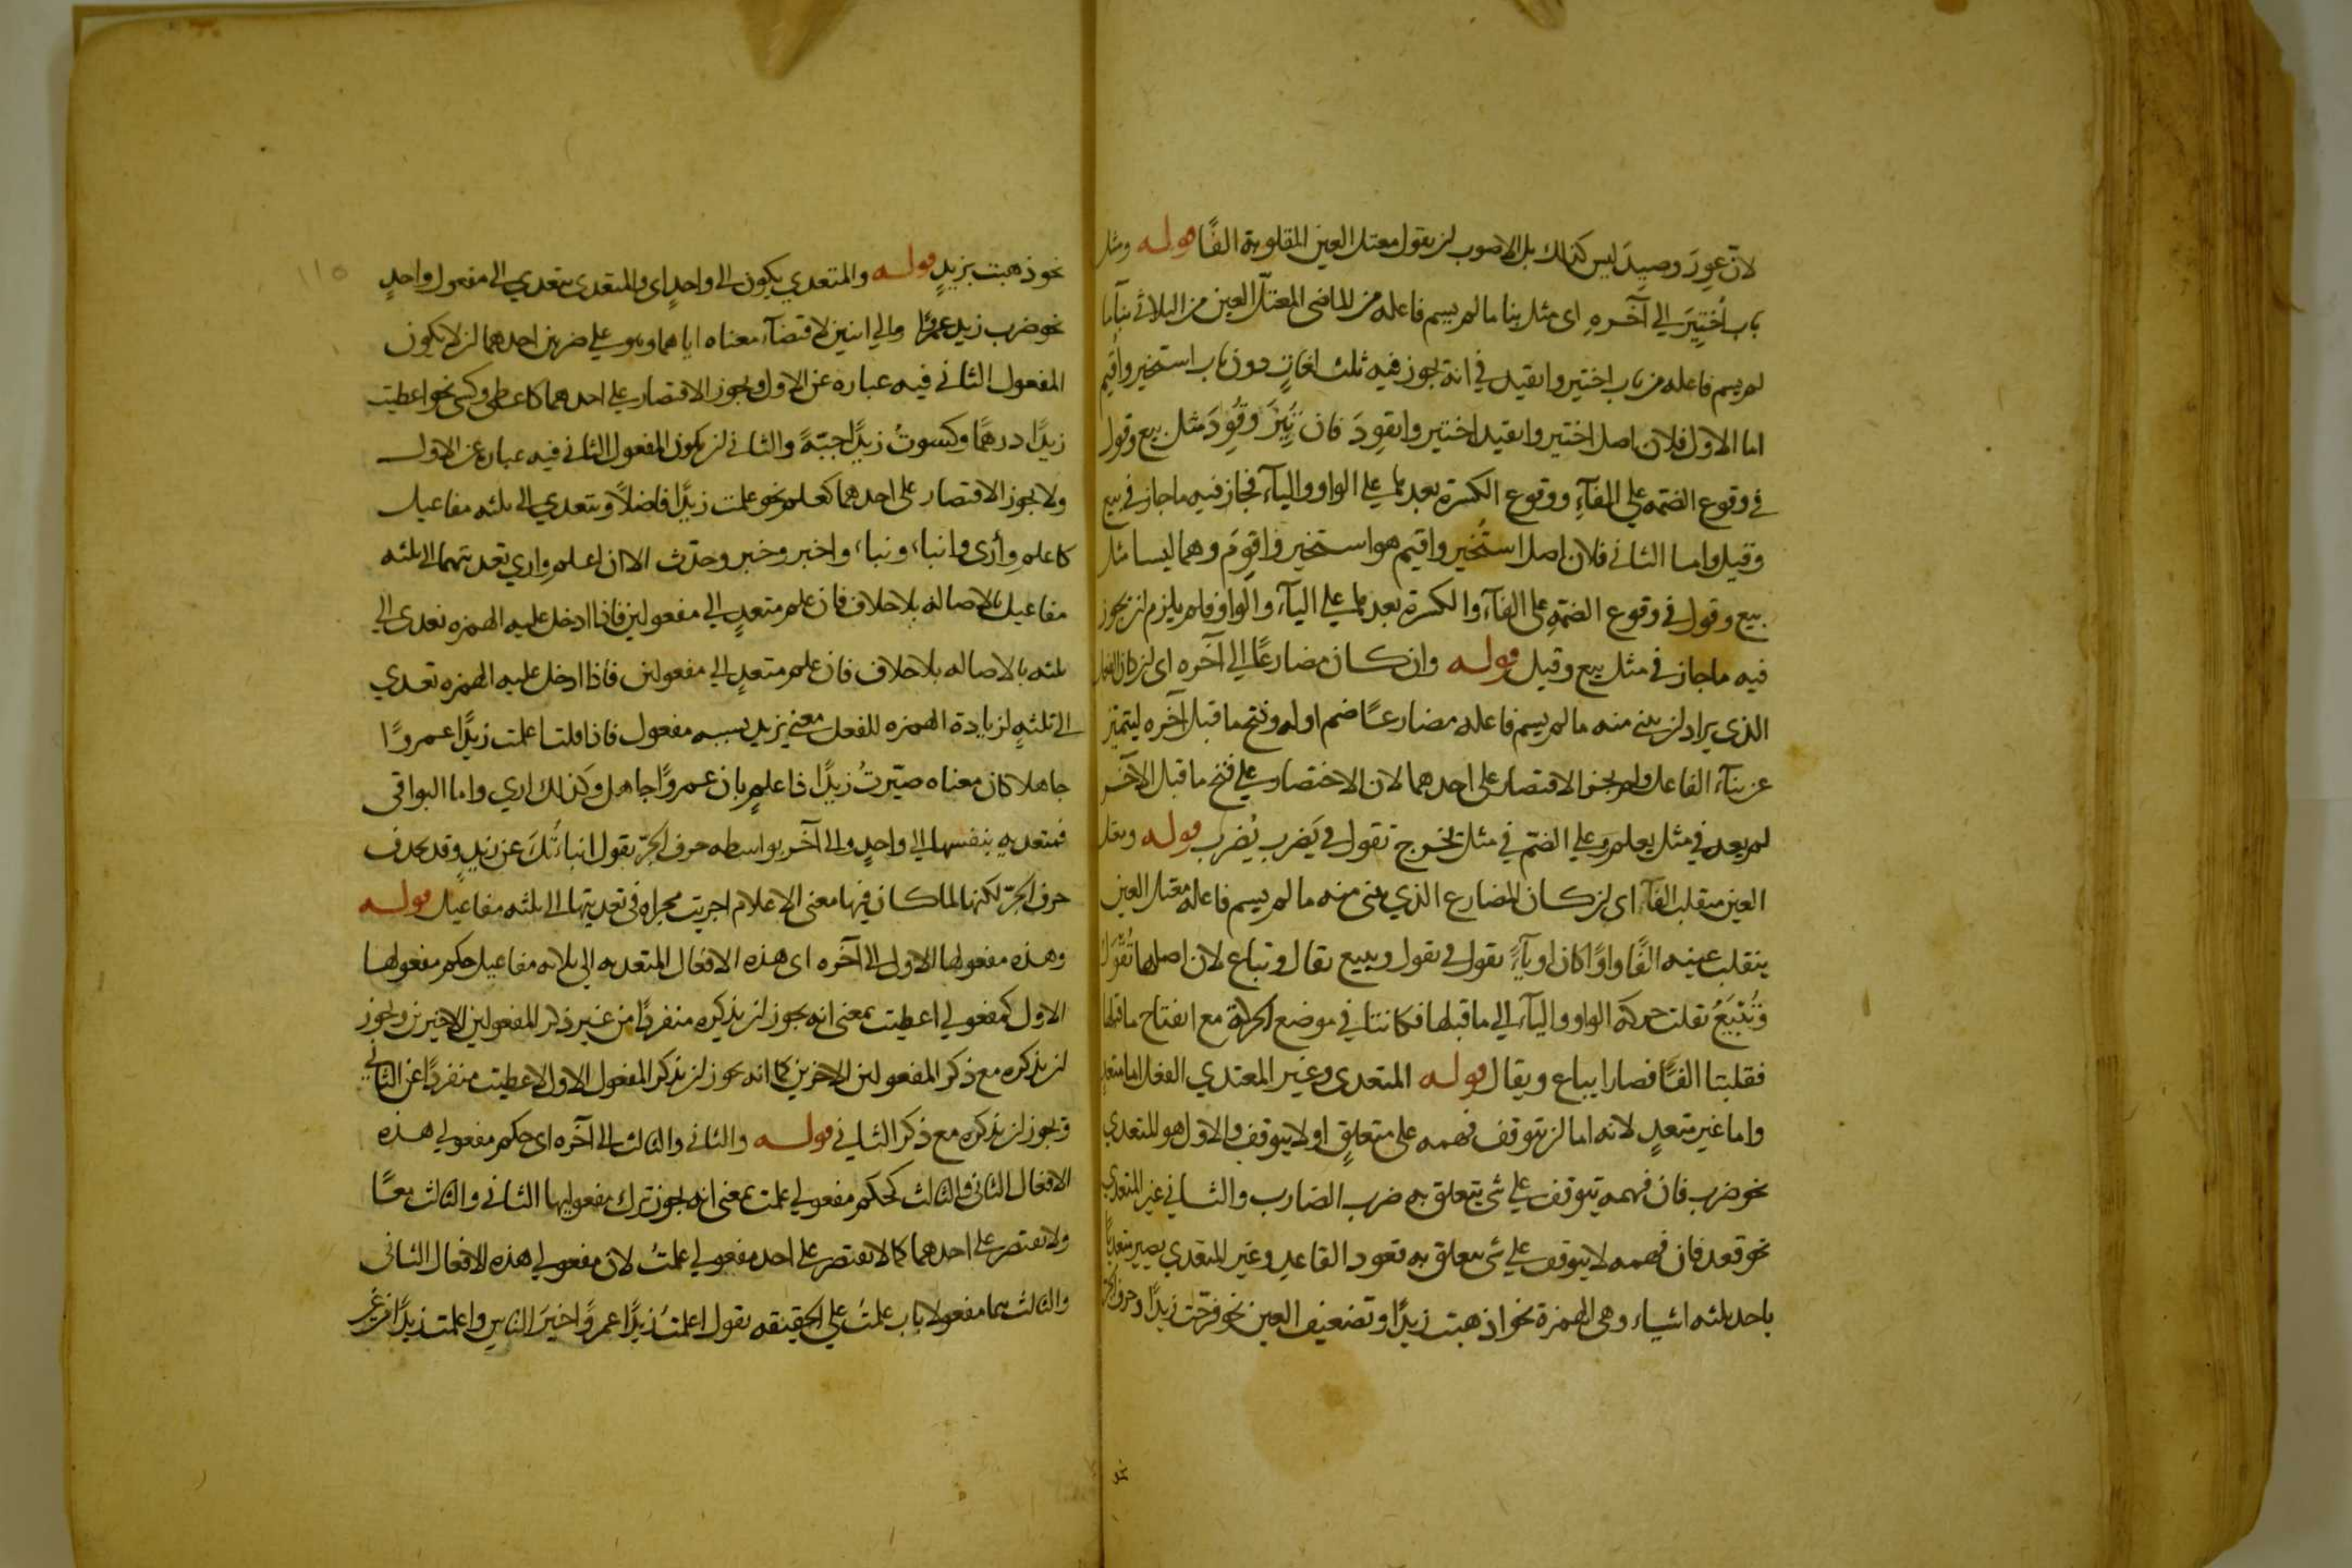 لان عَوِرَ وصَيِدَ ليس كذلك بل الاصوب لن يقول معتل العين المقلوبة الفًا قوله ومثل
باب اُختِيرَ الي آخره اى مثل بنا ما لم يسم فاعله من الماضى المعتل العين من الثلاثي بناء ما
لم يسم فاعله من باب اختير وانقيد في انه يجوز فيه ثلث لغاتٍ دون باب استخير واُقيم
اما الاول فلان اصل اختير وانقيد اختير وانقوِدَ فان تُيِرَ وقُوِدَ مثل بيع وقول
في وقوع الضمه على الفآءِ ووقوع الكسرة بعدها على الواو واليآء فجاز فيه ما جاز في بيع
وقيل واما الثاني فلان اصل استُخير واقيم هو استخير واقوِمَ وهما ليسا مثل
بيع وقول في وقوع الضمةِ على الفآء والكسرة بعدها على اليآء والواو فلم يلزم لن يجوز
فيه ما جاز في مثل بيع وقيل قوله وان كان مضارعًا الي آخره اى لن كان الفعل
الذى يراد لن يبنى منه ما لم يسم فاعله مضارعًا ضم اوله وفتح ما قبل آخره ليتميز
عن بنآء الفاعل ولم يجز الاقتصار على احدهما لان الاختصار على فتح ما قبل الآخر
لم يعد في مثل يعلم وعلي الضم في مثل يخرج تقول في يَضرِب يُضرَب قوله ومعتل
العين ينقلب الفآ اى لن كان المضارع الذي يبنى منه ما لم يسم فاعله معتل العين
ينقلب عينه الفًا واوًا كان او يآءً تقول في تقول وتبيع تقال وتباع لان اصلها تُقْوَلُ
وتُبْيَعُ نقلت حركة الواو واليآء الي ما قبلها فكانتا في موضع الحركة مع انفتاح ما قبلها
فقلبتا الفًا فصارا يباع ويقال قوله المتعدى وغير المتعدي الفعل اما متعدٍ
واما غير متعدٍ لانه اما لن يتوقف فهمه على متعلقٍ او لا يتوقف والاول هو المتعدي
نحو ضرب فان فهمه يتوقف علي شئ يتعلق به ضرب الضارب والثاني غير المتعدي
نحو قعد فان فهمه لا يتوقف علي شئ يتعلق به قعود القاعد وغير المتعدي يصير متعديًا
باحد ثلثه اشياء وهى الهمزة نحو اذهبت زيدًا وتضعيف العين نحو فرّحت زيدًا وحرف الجر
نحو ذهبت بزيدٍ قوله والمتعدي يكون الى واحدٍ اى والمتعدى يتعدي الى مفعول واحدٍ
نحو ضرب زيد عمروًا والي اثنين لاقتضآء معناه اياهما وهو على ضربين احدهما لن لا يكون
المفعول الثاني فيه عباره عن الاول ويجوز الاقتصار على احدهما كاعطى وكسى نحو اعطيت
زيدًا درهمًا وكسوتُ زيدًا جبّةً والثاني لن يكون المفعول الثاني فيه عباره عن الاول
ولا يجوز الاقتصار على احدهما كعلم نحو علمت زيدًا فاضلًا ويتعدي الى ثلثه مفاعيل
كاعلم وأرى وانبا، ونبا، واخبر وخبر وحدّث الا ان اعلم واري تعديتهما الى ثلثه
مفاعيل بالاصاله بلا خلاف فان علم متعدٍ الي مفعولين فاذا ادخل عليه الهمزه تعدى الي
ثلثه بالاصاله بلا خلاف فان علم متعدٍ الي مفعولين فاذا ادخل عليه الهمزه تعدي
الى ثلثةٍ لزيادة الهمزه للفعل معنى يزيد بسببه مفعول فاذا قلت اعلمت زيدًا عمروًا
جاهلا كان معناه صيّرتُ زيدًا فاعلمٍ بان عمروًا جاهل وكذلك اري واما البواقى
فمتعديه بنفسها الي واحدٍ والى آخر بواسطه حرف الجرّ تقول انباءتُكَ عن زيدٍ وقد يحذف
حرف الجرّ لكنها لما كان فيها معنى الاعلام اجريت مجراه فى تعديتها الى ثلثه مفاعيل قوله
وهذه مفعولها الاول الى آخره اى هذه الافعال المتعديه الي ثلاثه مفاعيل حكم مفعولها
الاول كمفعولي اعطيت بمعنى انه يجوز لن يذكره منفردًا من غير ذكر المفعولين الاخيرين ويجوز
لن يذكره مع ذكر المفعولين الاخرين كما انه يجوز لن يذكر المفعول الاول لاعطيت منفردًا عن الثاني
ويجوز لن يذكره مع ذكر الثاني قوله والثاني والثالث الى آخره اى حكم مفعولي هذه
الافعال الثانى والثالث كحكم مفعولي علمت بمعنى انه يجوز ترك مفعوليها الثاني والثالث معًا
ولا يقتصر على احدهما كما لا يقتصر على احد مفعولي علمتُ لان مفعولي هذه الافعال الثانى
والثالث هما مفعولا باب علمتُ على الحقيقه تقول اعلمتُ زيدًا عمروًا خيرَ الناسِ واعلمت زيدًا من غير